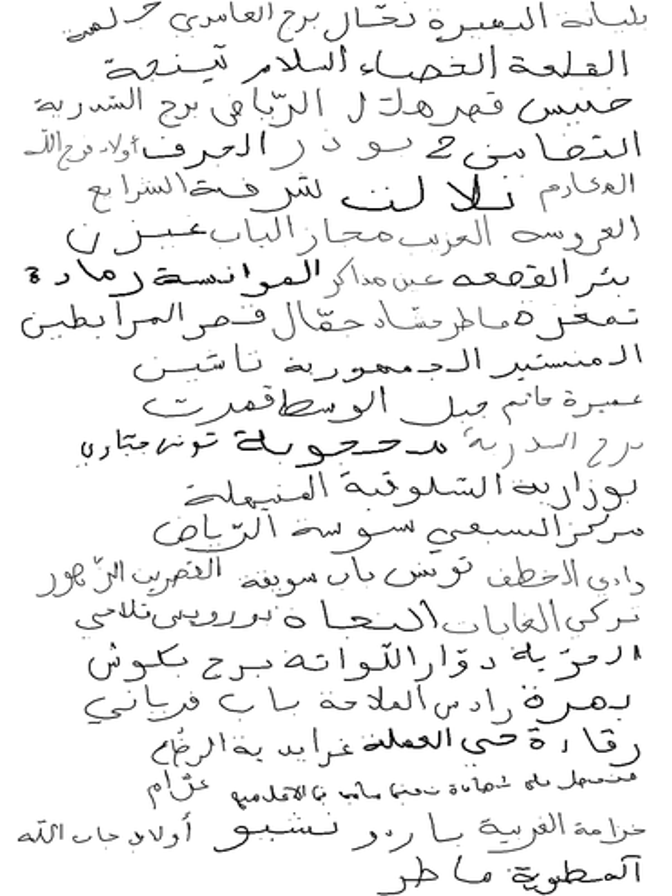 بليانة البهيرة نحّال برج العامري
القلعة الخصاء السلام تينجة
خنيس قصر هلال الرّياض برج السّدرية
النّحاسي 2 بوذر الجرف أولاد فرج اللّه
المكارم تلالت شرفة الشرايع
العروسة العزيب مجاز الباب غيزن
بئر القصعه عين مذاكر الموانسة رمادة
تمغزة ماطر حشاد حقّال قصر المرابطين
المنستير الجمهورية تاشين
عميرة حاتم جبل الوسط قمرت
برج السدرية محجوبة تونس
بوزارية السّلوقية المنيهلة
مركز السبعي سوسة الرّياض
وادي الاخطف تونس باب سويقة القصرين الزّهور
تركي الغابات النجاة بوروبس تلاحي
المزّية دوّار اللّواتة برج بكوش
بهرة رادس الملاحة باب فرياني
رقادة حي العملة غرايدية الرضاع
عزّام
خزامة الغربية باردو نشبو أولاد جاب اللّه
المطوية ماطر